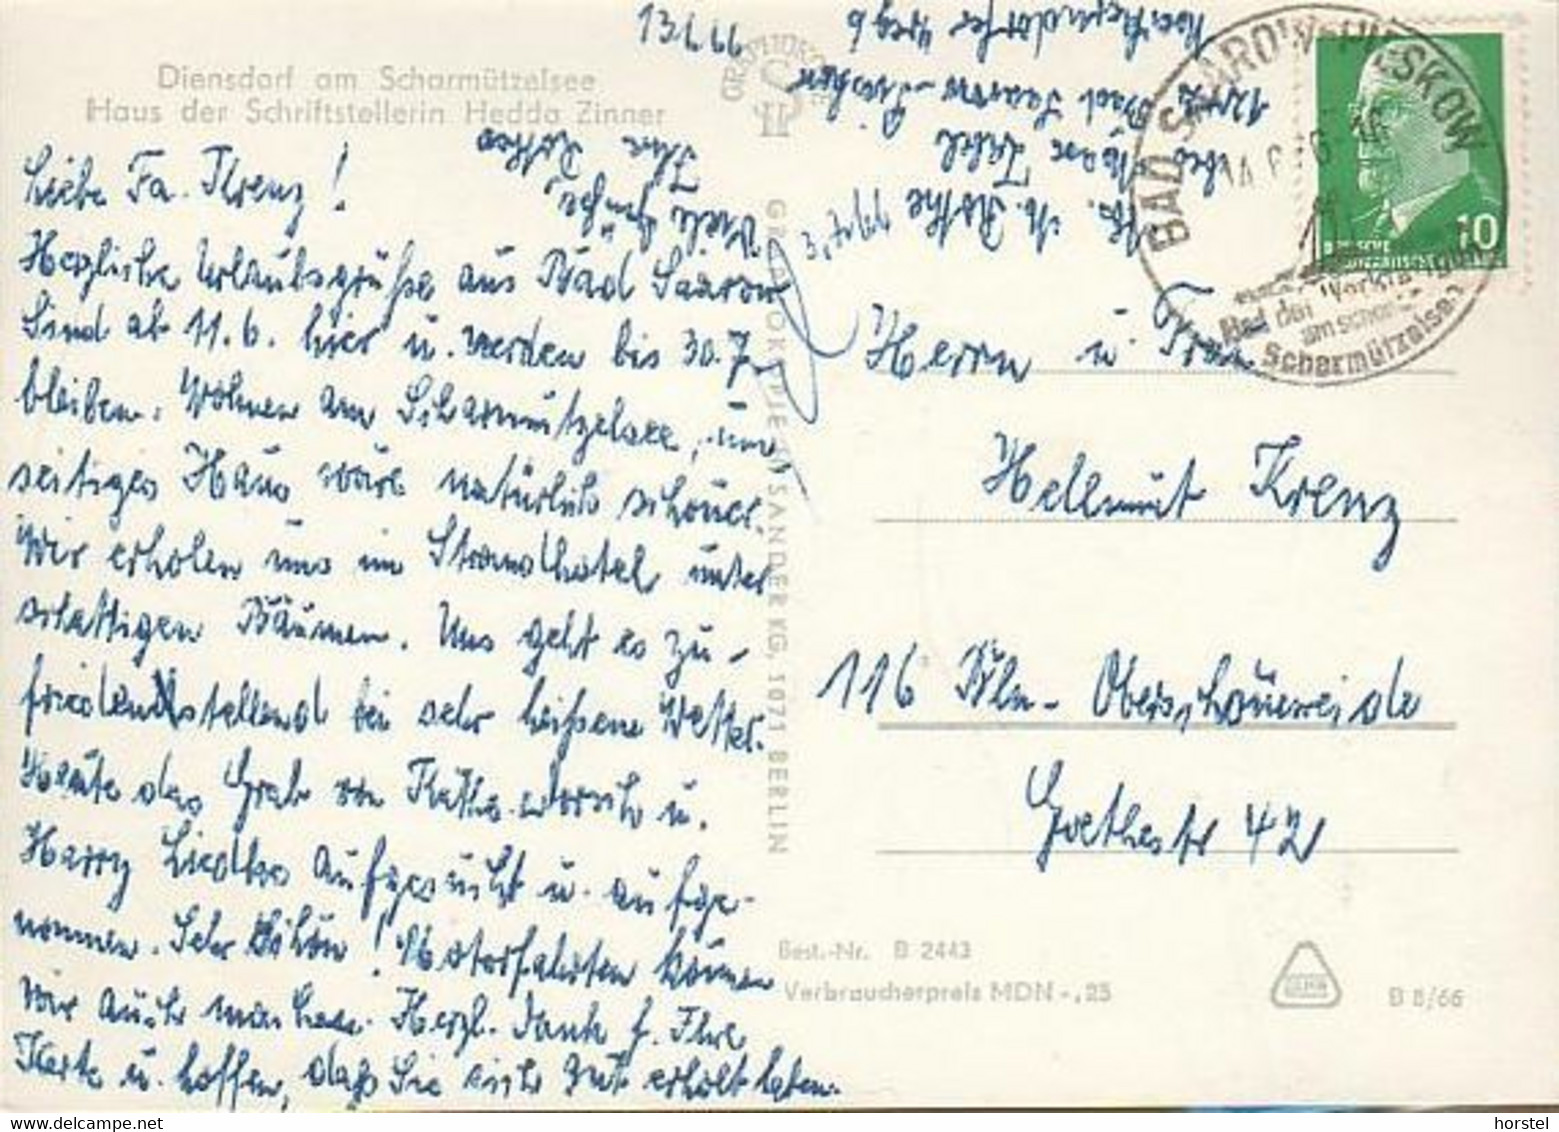 Diensdorf am Scharmützelsee
Haus der Schriftstellerin Hedda Zinner
13.6.66
Liebe Fa. Krenz!
Herzliche Urlaubsgrüße aus Bad Saarow
Sind ab 11.6. hier u. werden bis 30.7.
bleiben. Wohnen am Scharmützelsee,
seitiges Haus wäre natürlich schöner.
Wir erholen uns im Strandhotel unter
schattigen Bäumen. Uns geht es zu-
friedenstellend bei sehr heißem Wetter.
Heute das Grab von Käthe Dorsch u.
Harry Liedtke aufgesucht u. aufge-
nommen. Sehr schön! Motorfahrten können
wir auch machen. Herzl. Dank f. Ihre
Karte u. hoffen, daß Sie sich gut erholt haben.
Viele Grüße
Ihre Rothes
Abs. M. Rothe
bei Max Zabel
Bad Saarow-
Weg 6
GRAPHOKOPIE H. SANDER KG, 1071 BERLIN
BAD SAAROW-PIESKOW
14.6.66
Bad der Werktätigen
am schönen
Scharmützelsee
10
Herrn u. Frau
Hellmut Krenz
116 Bln-Oberschöneweide
Goethestr 42
Best.-Nr. B 2443
Verbraucherpreis MDN -,25
B 8/66
horstel
www.delcampe.net